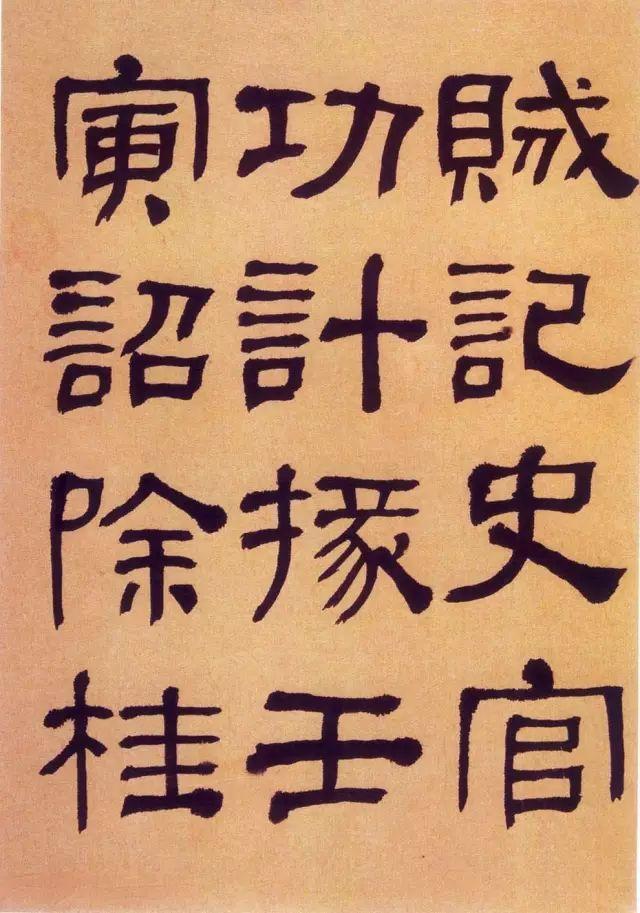 賊記史官
功計掾壬
寅詔除桂